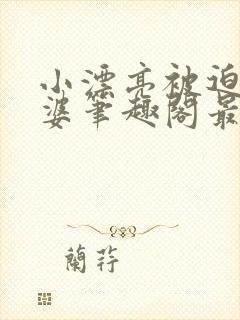 小漂亮被迫
婆笔趣阁最
蘭荇